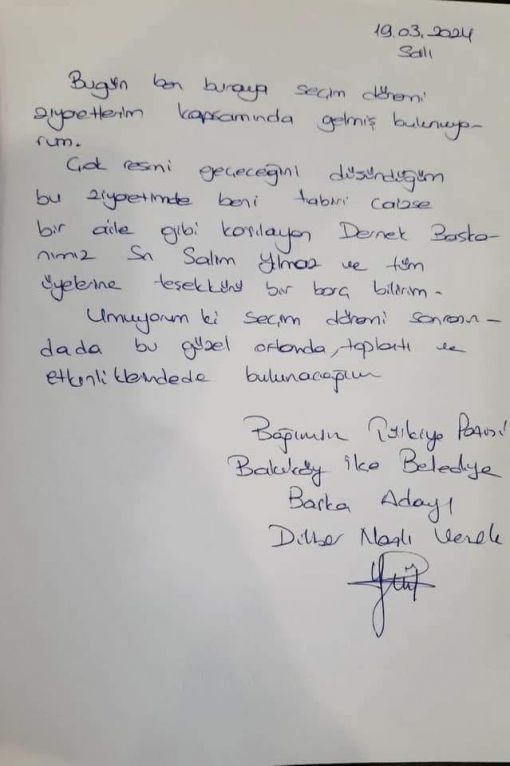 19.03.2024
Salı
Bugün ben buraya seçim dönemi
ziyaretlerim kapsamında gelmiş bulunuyo-
rum.
Çok resmi geçeceğini düşündüğüm
bu ziyaretimde beni tabiri caizse
bir aile gibi karşılayan Dernek Başka-
nımız Sn Salim Yılmaz ve tüm
üyelerine teşekkürü bir borç bilirim.
Umuyorum ki seçim dönemi sonrasın-
dada bu güzel ortamda, toplantı ve
etkinliklerindede bulunacağım
Bağımsız Türkiye Partisi
Bakırköy ilçe Belediye
Başka Adayı
Dilber Nazlı